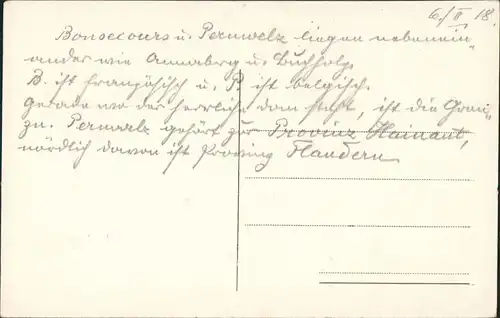 6./II. 18.
Bonsecours u. Peruwelz liegen nebenein„
ander wie Annaberg u. Buchholz.
B. ist französisch u. P. ist belgisch.
Gerade wo der herrliche Dom steht, ist die Gren„
ze. Peruwelz gehört zur Provinz Hainaut,
nördlich davon ist Provinz Flandern.